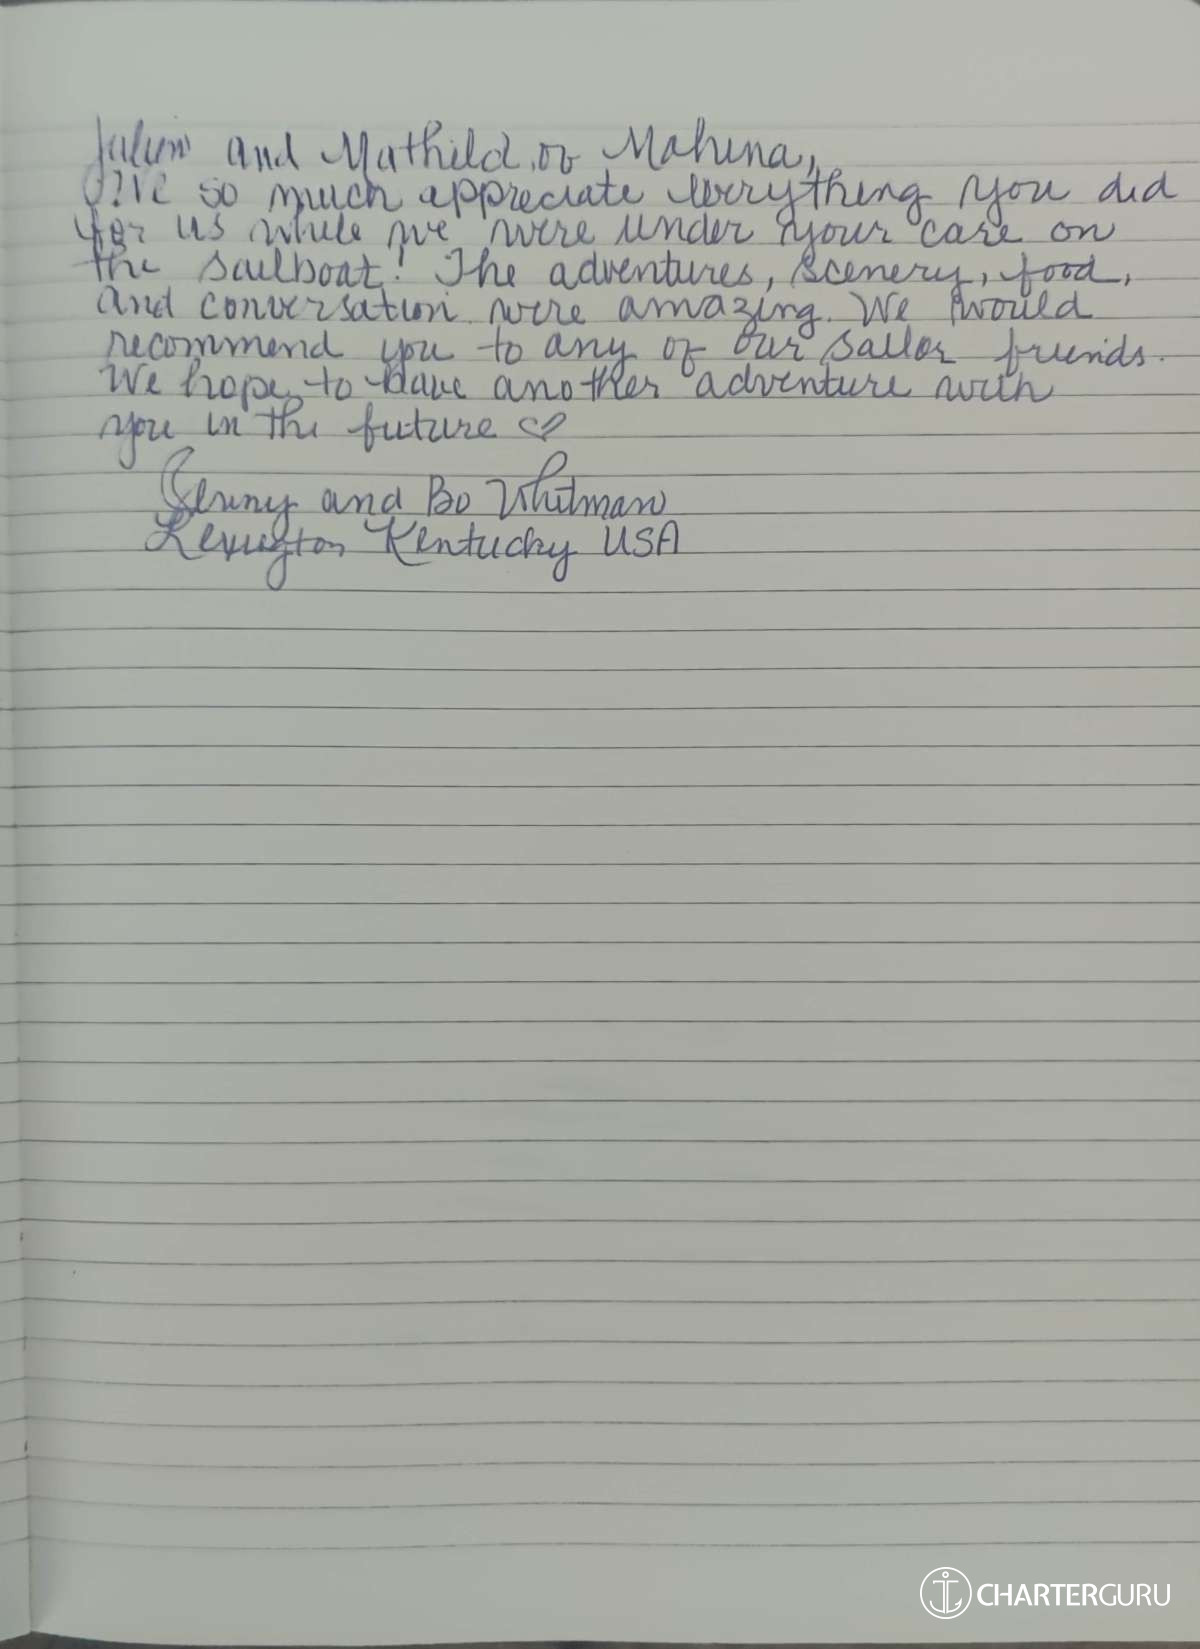 and Mathild of Mahina,
We so much appreciate everything you did
for us while we were under your care on
the sailboat! The adventures, scenery, food,
and conversation were amazing. We would
recommend you to any of our sailor friends.
We hope to have another adventure with
you in the future ♡
Jenny and Bo Whitman
Lexington Kentucky USA
CHARTERGURU